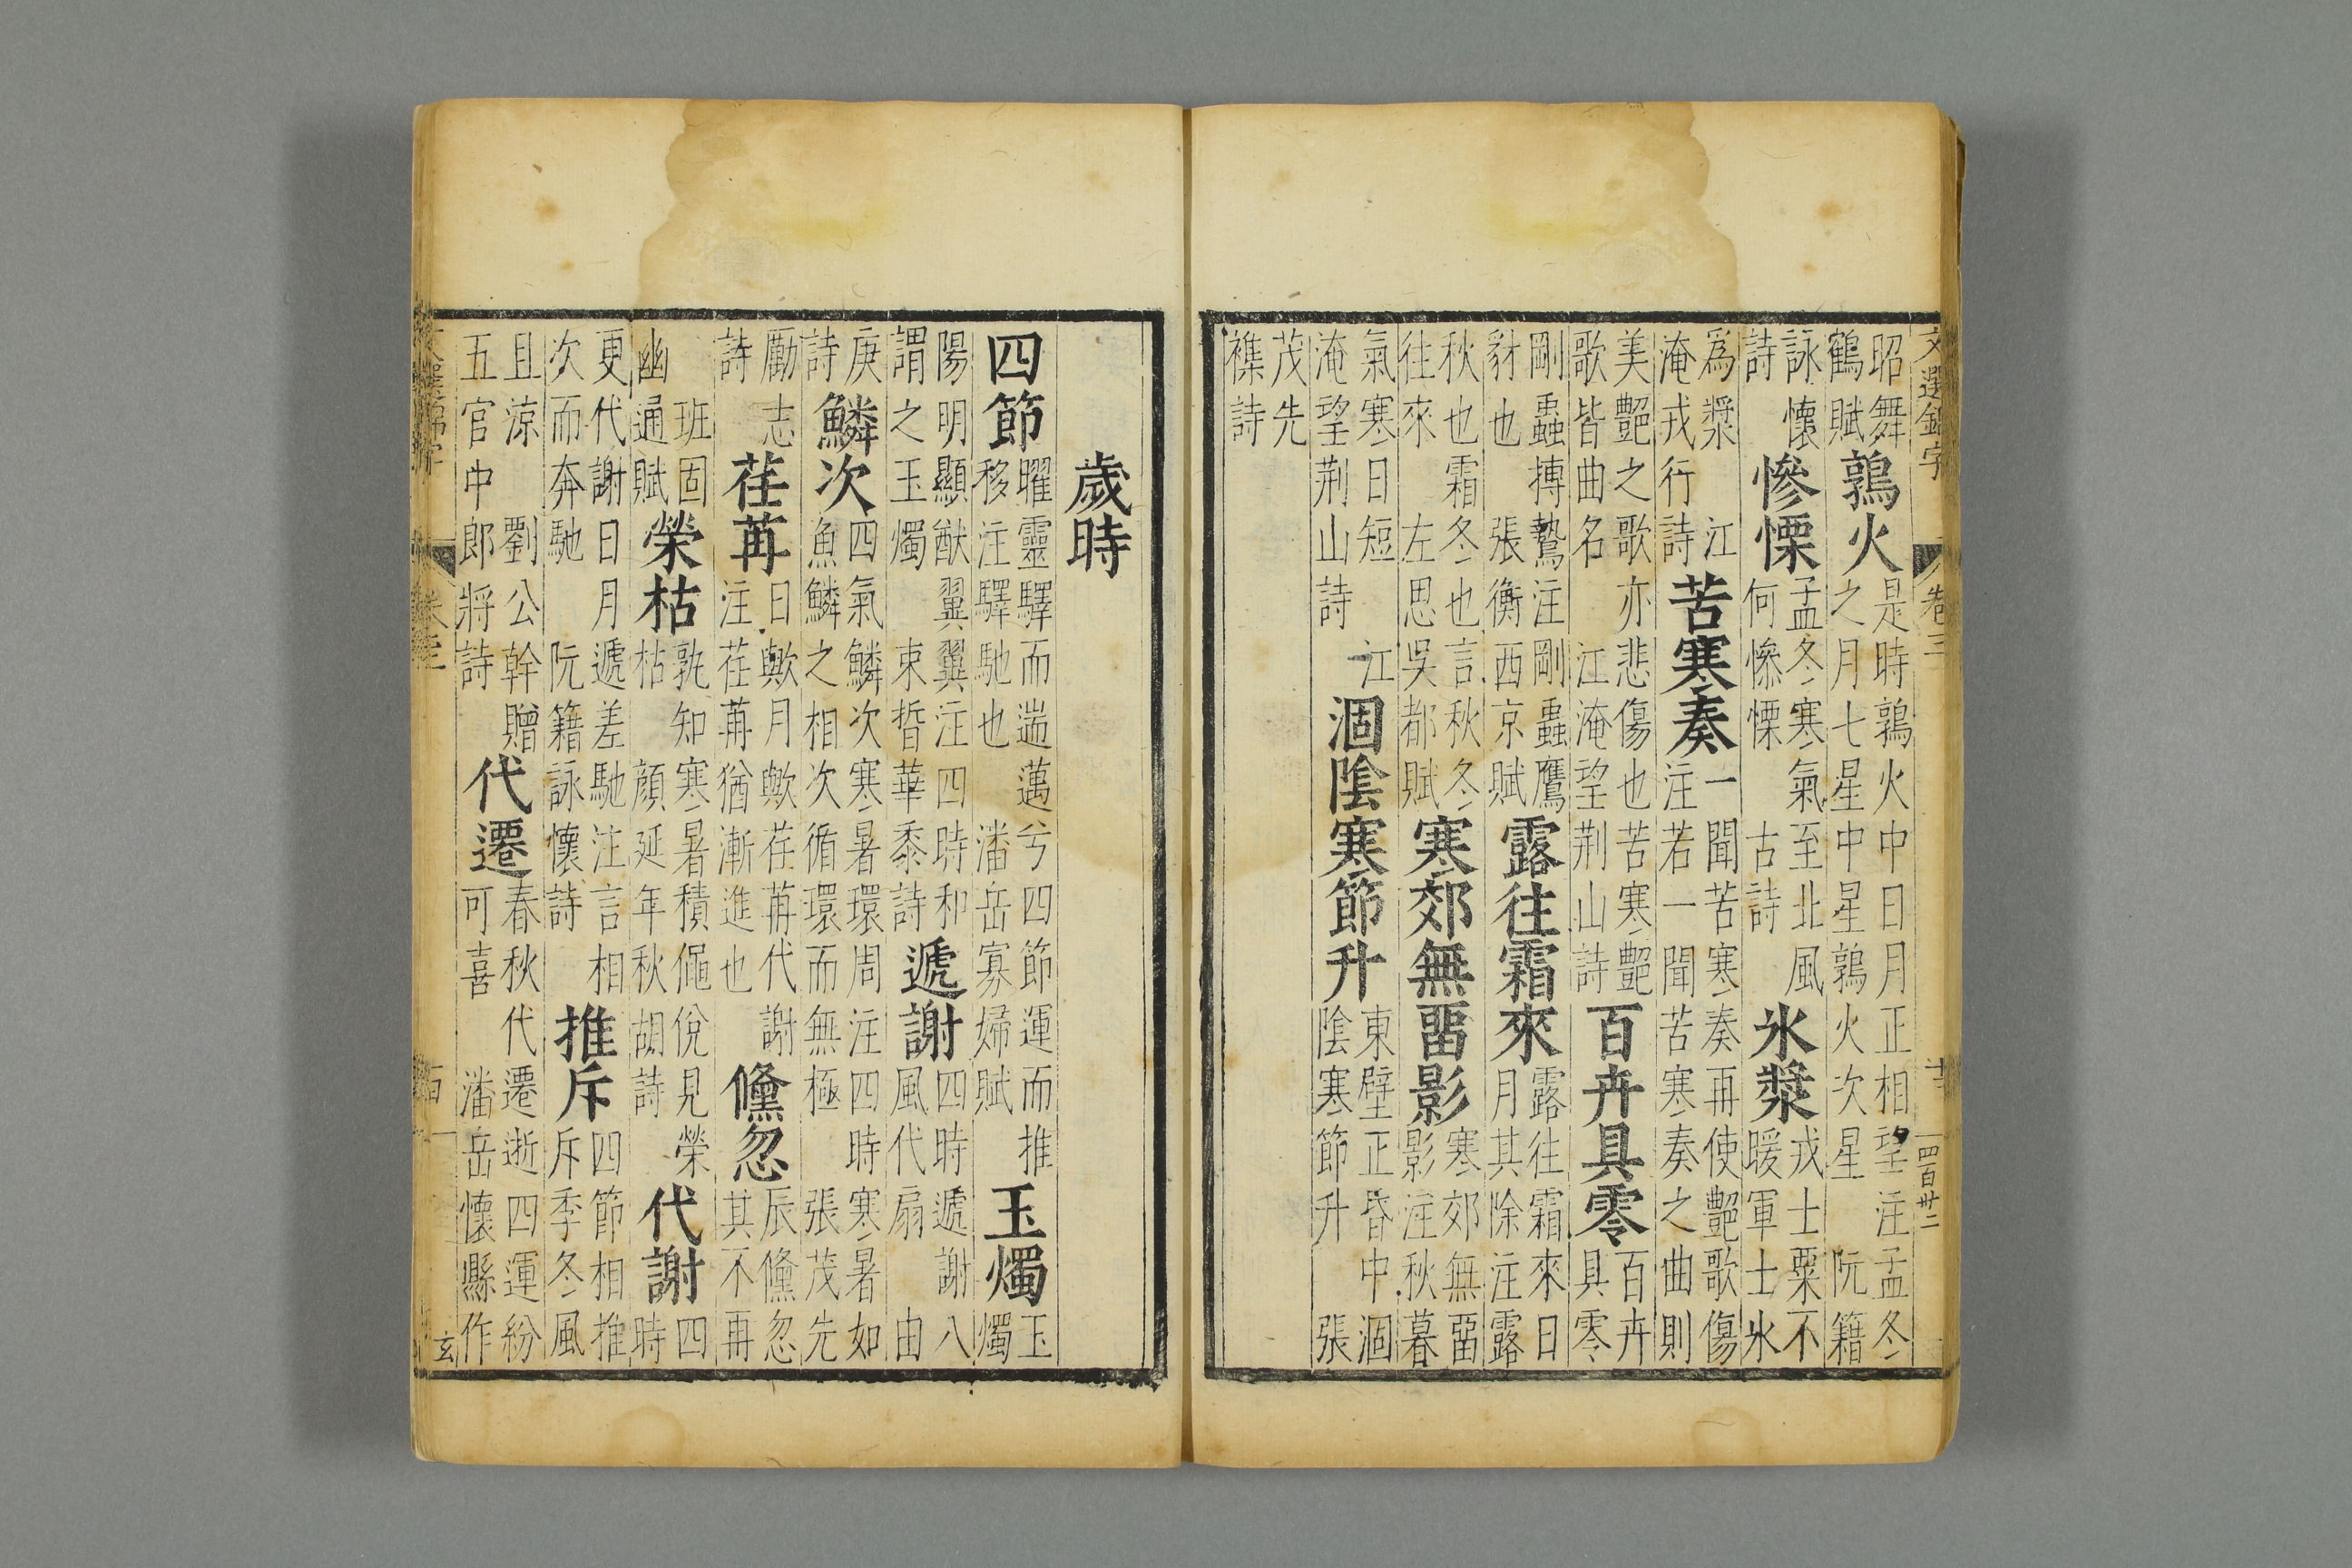 文選錦字 卷三 十二 一四百廿二
昭舞鶴賦鶉火是時鶉火中日月正相望注孟冬之月七星中星鶉火次星 阮籍
詠懷詩慘慄孟冬寒氣至北風何慘慄 古詩氷漿戎士粟不暖軍士氷
爲漿 江淹戎行詩苦寒奏一聞苦寒奏再使艷歌傷注若一聞苦寒奏之曲則
美艷之歌亦悲傷也苦寒艷歌皆曲名 江淹望荆山詩百卉具零百卉具零
剛蟲搏鷙注剛蟲鷹豺也 張衡西京賦露往霜來露往霜來日月其除注露
秋也霜冬也言秋冬往來 左思吳都賦寒郊無畱影寒郊無畱影注秋暮
氣寒日短 江淹望荆山詩涸陰寒節升東壁正昏中涸陰寒節升 張
茂先襍詩
歲時
四節曜靈驛而遄邁兮四節運而推移注驛馳也 潘岳寡婦賦玉燭玉燭
陽明顯猷翼翼注四時和謂之玉燭 束晳華黍詩遞謝四時遞謝八風代扇 由
庚詩鱗次四氣鱗次寒暑環周注四時寒暑如魚鱗之相次循環而無極 張茂先
勵志詩荏苒日歟月歟荏苒代謝注荏苒猶漸進也儵忽辰儵忽其不再
班固幽通賦榮枯孰知寒暑積僶俛見榮枯 顔延年秋胡詩代謝四時
更代謝日月遞差馳注言相次而奔馳 阮籍詠懷詩推斥四節相推斥季冬風
且涼 劉公幹贈五官中郎將詩代遷春秋代遷逝四運紛可喜 潘岳懷縣作
玄